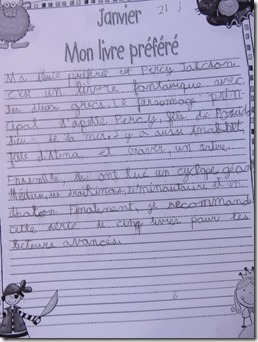 Janvier 21 j
Mon livre préféré
Ma livre préféré et Percy Jackson
C'est un livre fantastique avec
les dieux grecs. Le personnage prin-
cipal s'apelle Percy, fils de Poseid
dieu de la mer. Il y a aussi Anabet
fille d'Atena et Grover, un satire.
Ensemble, ils ont tué un cyclope géan
Méduse, le minautaure et un
Finalement, je recommand
cette série de cinq livres pour les
lecteurs avancés.